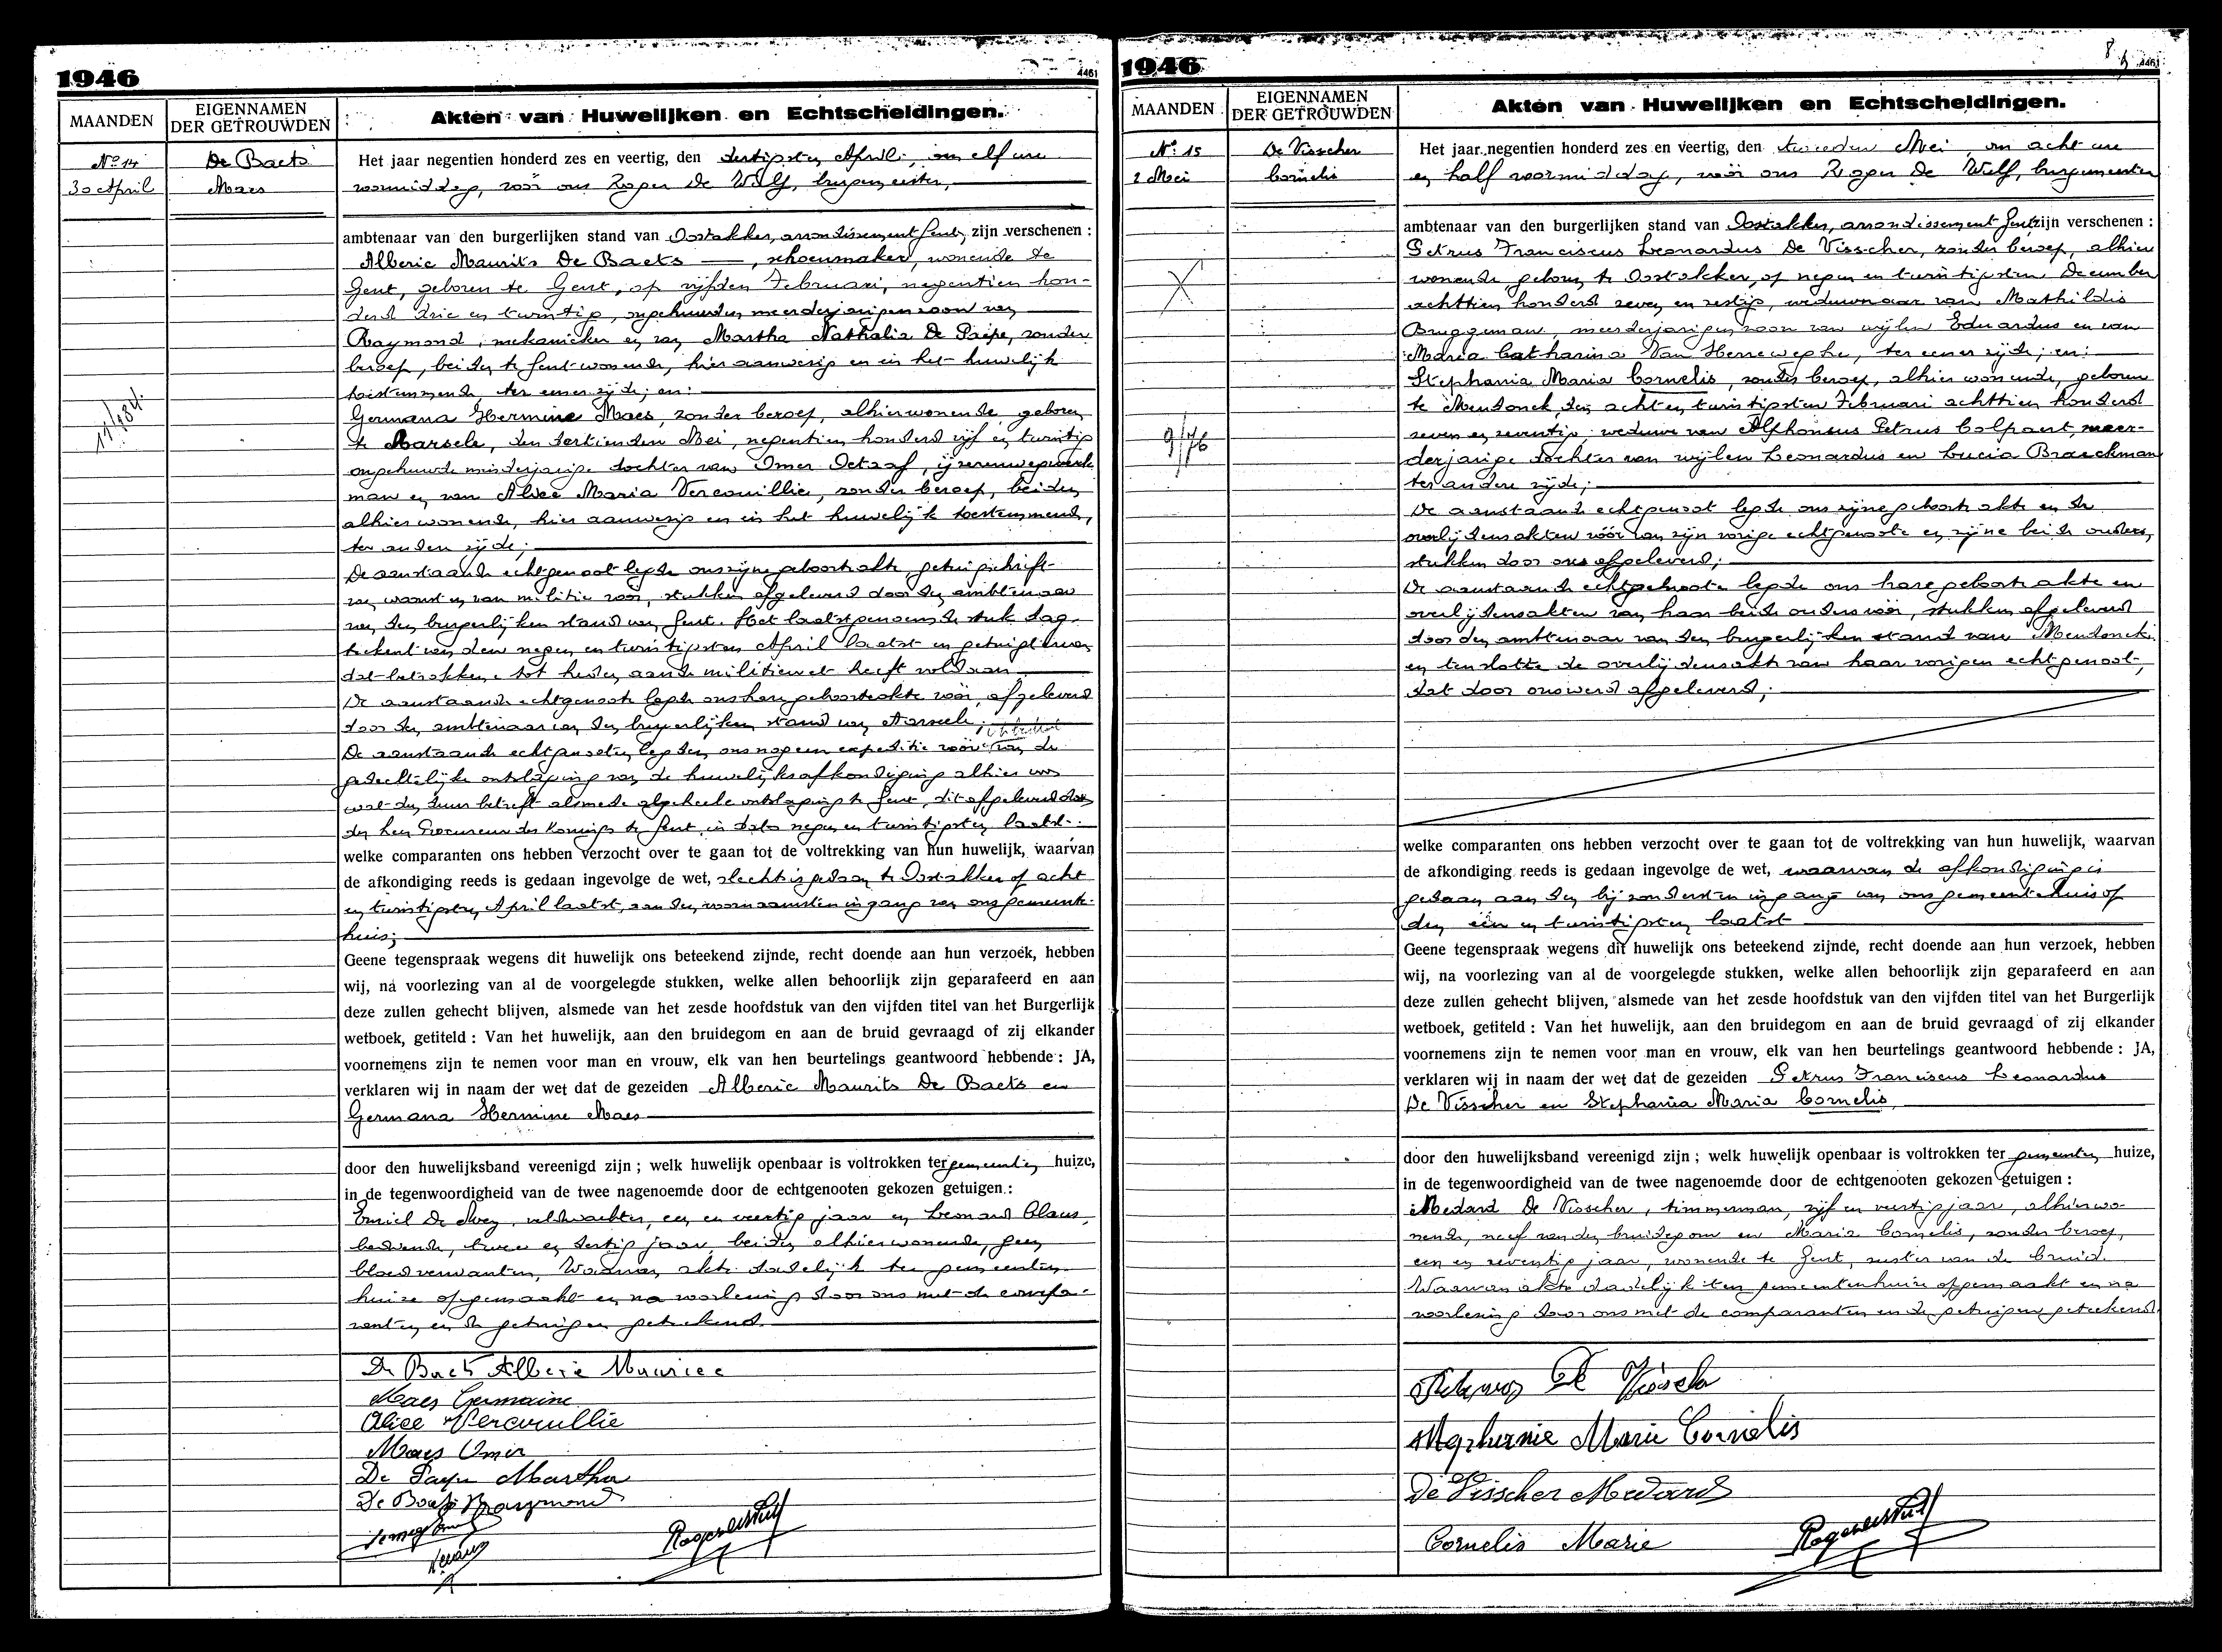 1946
4461
MAANDEN
EIGENNAMEN
DER GETROUWDEN
Akten van Huwelijken en Echtscheidingen.
No 14
30 April
De Baets
Maes
11/84.
Het jaar negentien honderd zes en veertig, den dertigsten April, om elf ure
voormiddag, voor ons Roger De Wulf, burgemeester,
ambtenaar van den burgerlijken stand van Oostakker, arrondissement Gent, zijn verschenen :
Alberic Maurits De Baets, schoenmaker, wonende te
Gent, geboren te Gent, op vijfden Februari, negentien hon-
derd drie en twintig, ongehuwden meerderjarigen zoon van
Raymond, mekanieker en van Martha Nathalia De Paepe, zonder
beroep, beiden te Gent wonende, hier aanwezig en in het huwelijk
toestemmende, ter eener zijde; en:
Germana Hermine Maes, zonder beroep, alhier wonende, geboren
te Aarsele, den dertienden Mei, negentien honderd vijf en twintig
ongehuwde minderjarige dochter van Omer Octaaf,
man en van Alice Maria Vercouillie, zonder beroep, beiden
alhier wonende, hier aanwezig en in het huwelijk toestemmend,
ter andere zijde;
De aanstaande echtgenoot legde ons zijne geboorteakte, getuigschrift
van woonst en van militie voor, stukken afgeleverd door den ambtenaar
van den burgerlijken stand van Gent. Het laatstgenoemde stuk dag-
teekent van den negen en twintigsten April laatst en getuigt ervan
dat betrokkene tot heden aan de militiewet heeft voldaan.
De aanstaande echtgenoote legde ons hare geboorteakte voor, afgeleverd
door den ambtenaar van den burgerlijken stand van Aarsele;
De aanstaande echtgenooten legden ons nog een expeditie voor van de
gedeeltelijke ontslaging van de huwelijksafkondiging alhier voor
wat den duur betreft alsmede algeheele ontslaging te Gent, dit afgeleverd door
den heer Procureur des Konings te Gent, in dato negen en twintigsten laatst.
welke comparanten ons hebben verzocht over te gaan tot de voltrekking van hun huwelijk, waarvan
de afkondiging reeds is gedaan ingevolge de wet, slechts is gedaan te Oostakker op acht
en twintigsten April laatst, aan den voornaamsten ingang van ons gemeente-
huis;
Geene tegenspraak wegens dit huwelijk ons beteekend zijnde, recht doende aan hun verzoek, hebben
wij, na voorlezing van al de voorgelegde stukken, welke allen behoorlijk zijn geparafeerd en aan
deze zullen gehecht blijven, alsmede van het zesde hoofdstuk van den vijfden titel van het Burgerlijk
wetboek, getiteld : Van het huwelijk, aan den bruidegom en aan de bruid gevraagd of zij elkander
voornemens zijn te nemen voor man en vrouw, elk van hen beurtelings geantwoord hebbende : JA,
verklaren wij in naam der wet dat de gezeiden Alberic Maurits De Baets en
Germana Hermine Maes
door den huwelijksband vereenigd zijn ; welk huwelijk openbaar is voltrokken ter gemeenten huize,
in de tegenwoordigheid van de twee nagenoemde door de echtgenooten gekozen getuigen :
Emiel De Mey, veldwachter, een en veertig jaar en Leonard Claus,
bediende, twee en dertig jaar, beiden alhier wonende, geen
bloedverwanten. Waarvan akte dadelijk ten gemeenten
huize opgemaakt en na voorlezing door ons met de compa-
ranten en de getuigen geteekend.
De Baets Alberic Maurice
Maes Germaine
Alice Vercouillie
Maes Omer
De Paepe Martha
De Baets Raymond
Roger De Wulf
1946
8
4461
MAANDEN
EIGENNAMEN
DER GETROUWDEN
Akten van Huwelijken en Echtscheidingen.
No 15
2 Mei
De Visscher
Cornelis
X
9/76
Het jaar negentien honderd zes en veertig, den tweeden Mei, om acht ure
en half voormiddag, voor ons Roger De Wulf, burgemeester
ambtenaar van den burgerlijken stand van Oostakker, arrondissement Gent zijn verschenen :
Petrus Franciscus Leonardus De Visscher, zonder beroep, alhier
wonende, geboren te Oostakker, op negen en twintigsten December
achttien honderd zeven en zestig, weduwnaar van Mathildis
Bruggeman, meerderjarigen zoon van wijlen Eduardus en van
Maria Catharina Van Herreweghe, ter eener zijde; en:
Stephania Maria Cornelis, zonder beroep, alhier wonende, geboren
te Mendonck, den acht en twintigsten Februari achttien honderd
zeven en zeventig, weduwe van Alphonsus Petrus Colpaert, meer-
derjarige dochter van wijlen Leonardus en Lucia Braeckman
ter andere zijde;
De aanstaande echtgenoot legde ons zijne geboorteakte en de
overlijdensakten vóór van zijn vorige echtgenoote en zijne beide ouders,
stukken door ons afgeleverd;
De aanstaande echtgenoote legde ons hare geboorteakte en
overlijdensakten van haar beide ouders voor, stukken afgeleverd
door den ambtenaar van den burgerlijken stand van Mendonck
en tenslotte de overlijdensakte van haar vorigen echtgenoot,
dat door ons werd afgeleverd;
welke comparanten ons hebben verzocht over te gaan tot de voltrekking van hun huwelijk, waarvan
de afkondiging reeds is gedaan ingevolge de wet, waarvan de afkondiging is
gedaan aan den bijzondersten ingang van ons gemeentehuis op
den één en twintigsten laatst
Geene tegenspraak wegens dit huwelijk ons beteekend zijnde, recht doende aan hun verzoek, hebben
wij, na voorlezing van al de voorgelegde stukken, welke allen behoorlijk zijn geparafeerd en aan
deze zullen gehecht blijven, alsmede van het zesde hoofdstuk van den vijfden titel van het Burgerlijk
wetboek, getiteld : Van het huwelijk, aan den bruidegom en aan de bruid gevraagd of zij elkander
voornemens zijn te nemen voor man en vrouw, elk van hen beurtelings geantwoord hebbende : JA,
verklaren wij in naam der wet dat de gezeiden Petrus Franciscus Leonardus
De Visscher en Stephania Maria Cornelis,
door den huwelijksband vereenigd zijn ; welk huwelijk openbaar is voltrokken ter gemeenten huize,
in de tegenwoordigheid van de twee nagenoemde door de echtgenooten gekozen getuigen :
Medard De Visscher, timmerman, vijf en veertig jaar, alhier wo-
nende, neef van den bruidegom en Maria Cornelis, zonder beroep,
een en zeventig jaar, wonende te Gent, zuster van de bruid.
Waarvan akte dadelijk ten gemeentenhuize opgemaakt en na
voorlezing door ons met de comparanten en de getuigen geteekend.
De Visscher
Marie Cornelis
De Visscher Medard
Cornelis Marie
Roger De Wulf